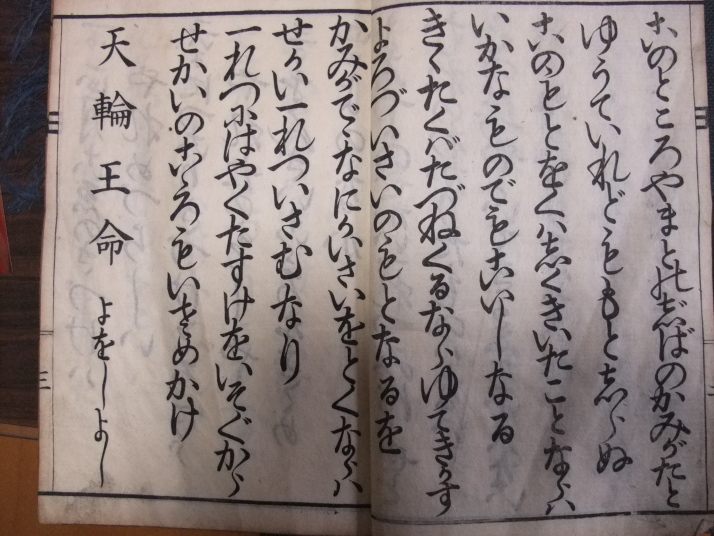 このところやまとのぢばのかみがたと
ゆうていれどももとしらぬ
このもとをくはしくきいたことならバ
いかなものでもこいしなる
きゝたくバたづねくるならゆてきかす
よろづいさいのもとなるを
かみがでゝなにかいさいをとくならバ
せかい一れついさむなり
一れつにはやくたすけをいそぐから
せかいのこゝろもいさめかけ
天輪王命　よをしよし
三